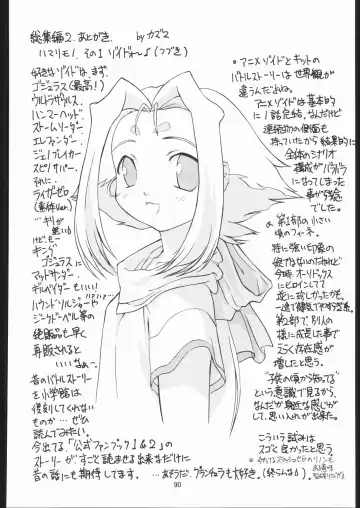 総集編2. あとがき. by カズマ
ハマリモノ. その1 ゾイドぉ〜♪(つづき)
好きなゾイドは まず、
ゴジュラス(最高!)
ウルトラザウルス、
ハンマーヘッド、
ストームソーダー、
エレファンダー、
ジェノブレイカー、
スピノサパー、
それに
ライガーゼロ
(素体Ver.)
…キリが
無いね
けどもー
キング
ゴジュラスに
マッドサンダー、
ギルベイダーもいい!
ハウンドソルジャーや
ジークドーベル等の
絶版品も早く
再販されると
いいなぁー。
昔のバトルストーリー
を小学館は
復刻してくれない
ものか…ぜひ
読んでみたい。
今出てる「公式ファンブック1&2」の
ストーリーがすごく読ませる出来なだけに
昔の話にも期待してます。…あそうだ、グランチュラも大好き。(終らんなあ)
•アニメゾイドとキットの
バトルストーリーは世界観が
違うんだよね。
アニメゾイドは基本的
に1話完結、なんだけど
連続物の側面も
持っていたから結果的に
全体のシナリオ
構成がアバウト
になってしまった
事が残念
でした。
第1部の小さい
頃のフィーネ。
特に強い印象の
娘ではないのだけれど
今時オーソドックス
なヒロインしてて
逆に珍しかったかも。
一途で健気でやさしくて。
第2部で別人の
様に成長した事で
さらに存在感が
増したと思う。
“子供の頃から知ってる”
という意識で見るから、
なんだか身近な感じが
して思い入れが出来た。
こういう試みは
スゴく良かったと思う
90